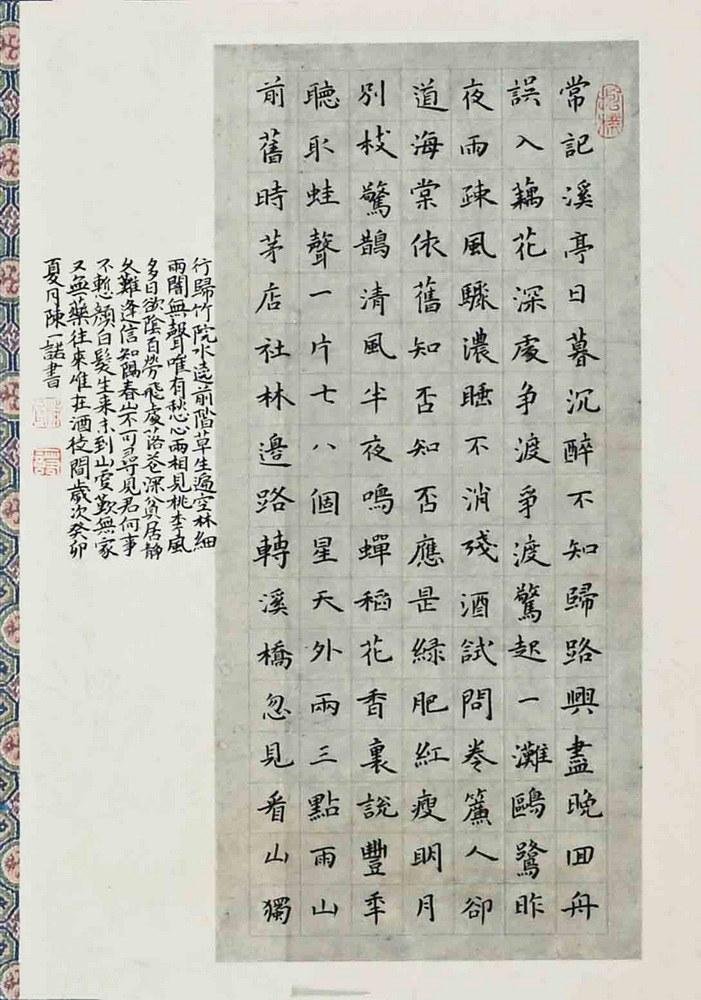 常記溪亭日暮沉醉不知歸路興盡晚回舟
誤入藕花深處爭渡爭渡驚起一灘鷗鷺昨
夜雨疎風驟濃睡不消殘酒試問卷簾人卻
道海棠依舊知否知否應是綠肥紅瘦明月
別枝驚鵲清風半夜鳴蟬稻花香裏說豐年
聽取蛙聲一片七八個星天外兩三點雨山
前舊時茅店社林邊路轉溪橋忽見看山獨
行歸竹院水遶前階草生遍空林細
雨闇無聲唯有愁心兩相見桃李風
多日欲陰百勞飛處落花深貧居靜
久難逢信知隔春山不可尋見君何事
不慙顏白髮生來未到山更歎無家
又無藥往來唯在酒徒間歲次癸卯
夏月陳一諾書